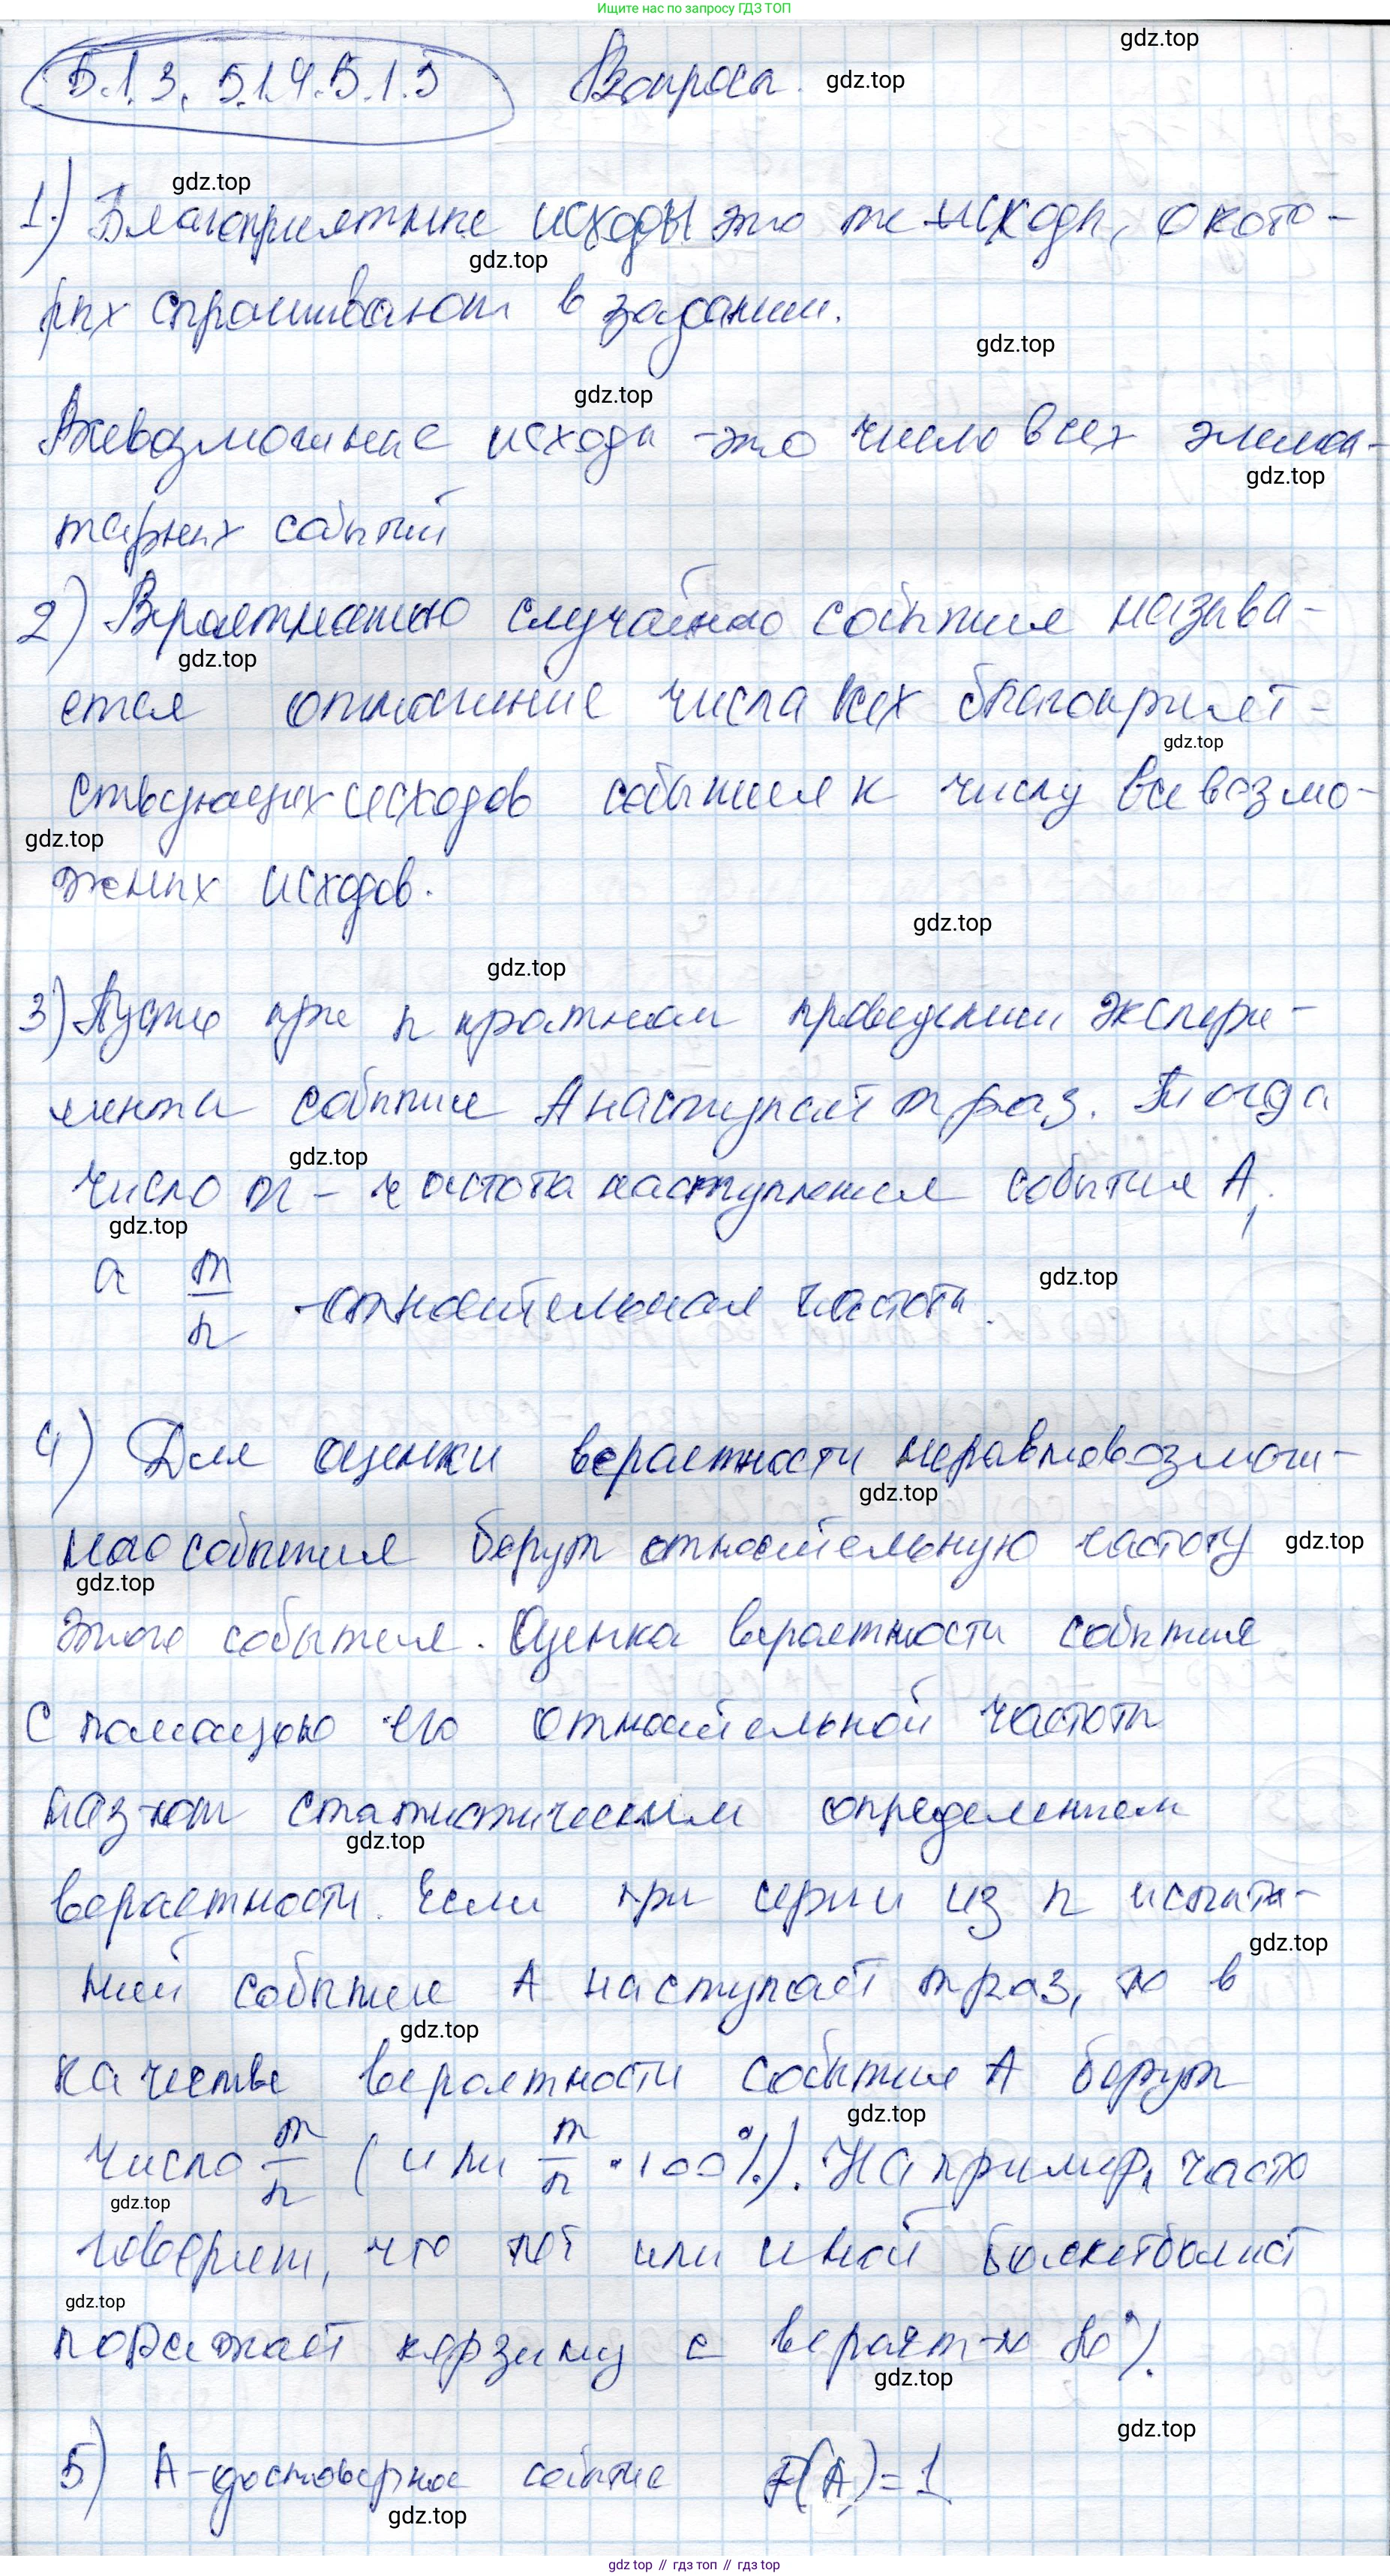 Ищите нас по запросу ГДЗ ТОП
gdz.top
5.1.3. 5.1.4. 5.1.5 Вопросы.
gdz.top
gdz.top
1.) Благоприятные исходы это те исходы, о кото-
gdz.top
рых спрашивают в задании.
gdz.top
gdz.top
Всевозможные исходы - это число всех элемен-
gdz.top
тарных событий
2) Вероятностью случайного события называ-
gdz.top
ется отношение числа всех благоприят-
gdz.top
ствующих исходов события к числу всевозмо-
gdz.top
жных исходов.
gdz.top
gdz.top
3) Пусть при n кратном проведении экспери-
мента событие А наступает m раз. Тогда
gdz.top
число m - частота наступления события А,
gdz.top
а m/n - относительная частота.
gdz.top
4) Для оценки вероятности неравновозмож-
gdz.top
ного события берут относительную частоту
gdz.top
gdz.top
этого события. Оценка вероятности события
с помощью его относительной частоты
наз-ют статистическим определением
gdz.top
вероятности. Если при серии из n испыта-
gdz.top
ний событие А наступает m раз, то в
gdz.top
качестве вероятности события А берут
gdz.top
число m/n (или m/n · 100%). Например, часто
gdz.top
говорят, что тот или иной баскетболист
gdz.top
поражает корзину с вероят-ю 80%.
gdz.top
gdz.top
5) А - достоверное событие P(A) = 1
gdz.top
gdz.top // гдз топ // гдз top